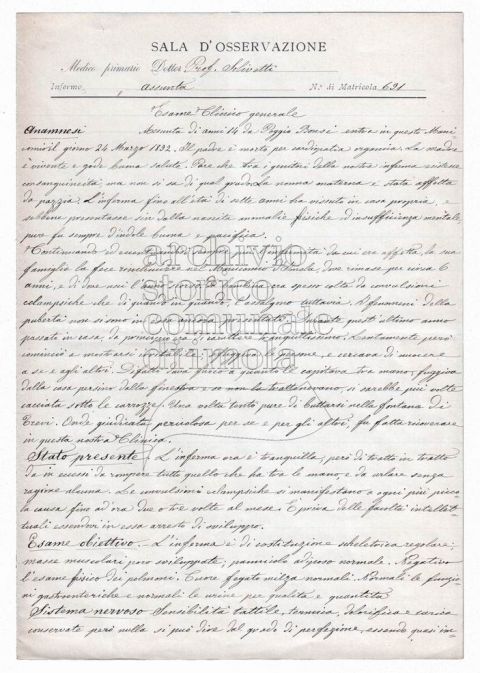 SALA D'OSSERVAZIONE
Medico primario Dottor Prof. Solivetti
Infermo Assunta N.º di Matricola 691
Esame Clinico generale
Anamnesi Assunta di anni 14 da Poggio Bonsi entra in questo Mani
comio il giorno 24 Marzo 1892. Il padre è morto per cardiopatia organica. La madre
è vivente e gode buona salute. Pare che tra i genitori della nostra inferma esistesse
consanguineità ma non si sa di qual grado. La nonna materna è stata affetta
da pazzia. L'inferma fino all'età di sette anni ha vissuto in casa propria, e
sebbene presentasse sin dalla nascita anomalie fisiche d'insufficienza mentale,
pure fu sempre d'indole buona e pacifica.
Continuando ed da cui era affetta, la sua
famiglia la fece rinchiudere nel Manicomio d'Imola, dove rimase per circa 6
anni, e di dove uscì spesso colta da convulsioni
eclampsiche che di quando in quando, l'assalgono tuttavia. I fenomeni della
pubertà non si sono in presentati. Durante quest'ultimo anno
passato in casa, da principio era di carattere tranquillissimo. Lentamente però
cominciò a mostrarsi e cercava di nuocere
a se e agli altri. Difatti quando le capitava tra mano, fuggiva
dalla casa persino dalla finestra e se non la trattenevano, si sarebbe più volte
cacciata sotto le carrozze. Una volta tentò pure di buttarsi nella fontana di
Trevi. Onde giudicata pericolosa per se e per gli altri, fu fatta ricoverare
in questa nostra Clinica.
Stato presente L'inferma ora è tranquilla, però di tratto in tratto
dà in eccessi da rompere tutto quello che ha tra le mani e da urlare senza
ragione alcuna. Le convulsioni eclampsiche si manifestano a ogni più picco
la causa fino ad ora due o tre volte al mese. È priva delle facoltà intellet
tuali essendovi in essa arresto di sviluppo.
Esame obiettivo. L'inferma è di costituzione scheletrica regolare;
masse muscolari poco sviluppate; pannicolo adiposo normale. Negativo
l'esame fisico dei polmoni. Cuore fegato milza normali. Normali le funzio
ni gastroenteriche e normali le urine per qualità e quantità.
Sistema nervoso Sensibilità tattile, termica, dolorifica e
conservate però nulla si può dire dal grado di perfezione, essendo quasi im-
archivio
storico
comunale
di imola